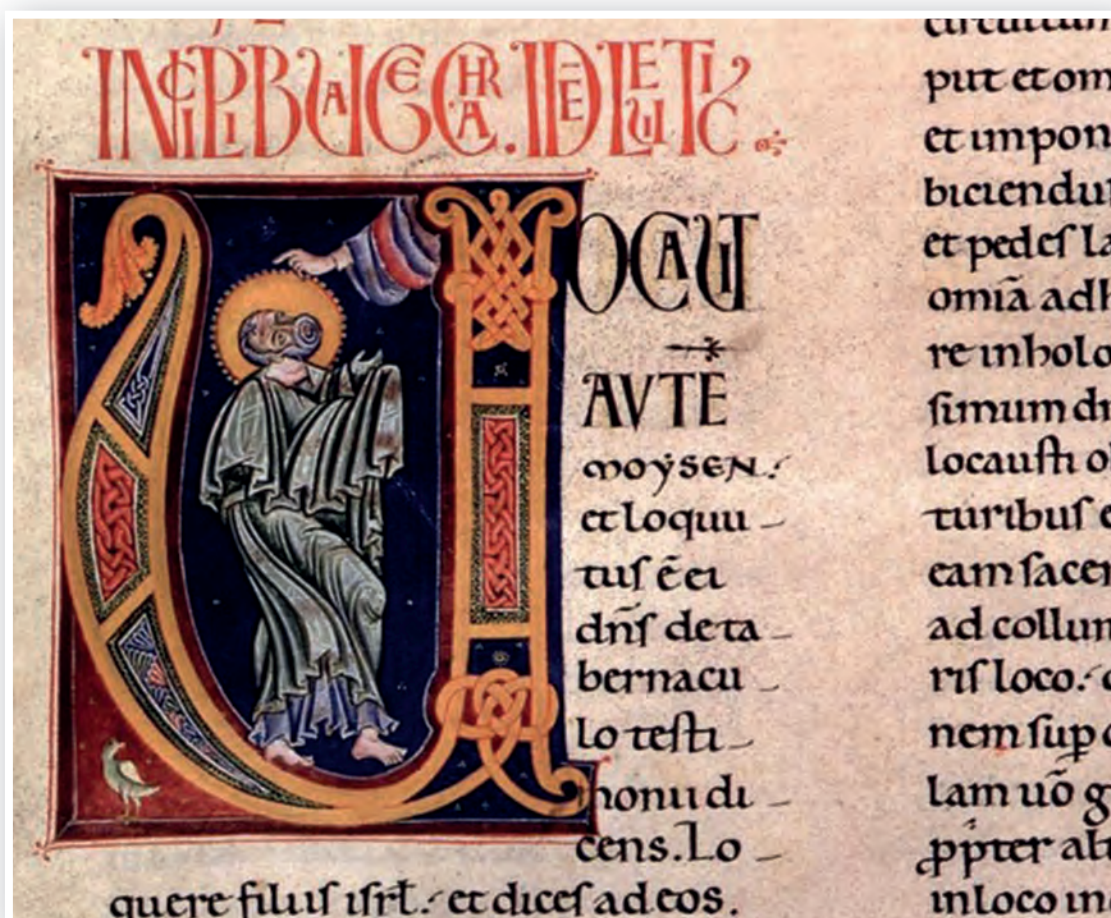 INCIP LIB UAGECHRA. ID Ē LEUITIC
UOCAUIT
AVTĒ
MOYSEN:
et loquu-
tuſ ē ei
dn̄ſ de ta-
bernacu-
lo teſti-
monii di-
cens. Lo-
quere filiiſ iſrł. et diceſ ad eos.
put et om
et impon
biciendu
et pedeſ la
omiā
re in holo
ſimum
locauſti
turibuſ
eam ſacer
ad collum
riſ loco.
nem ſup
lam uō
p̲p̄ter alt
in loco in